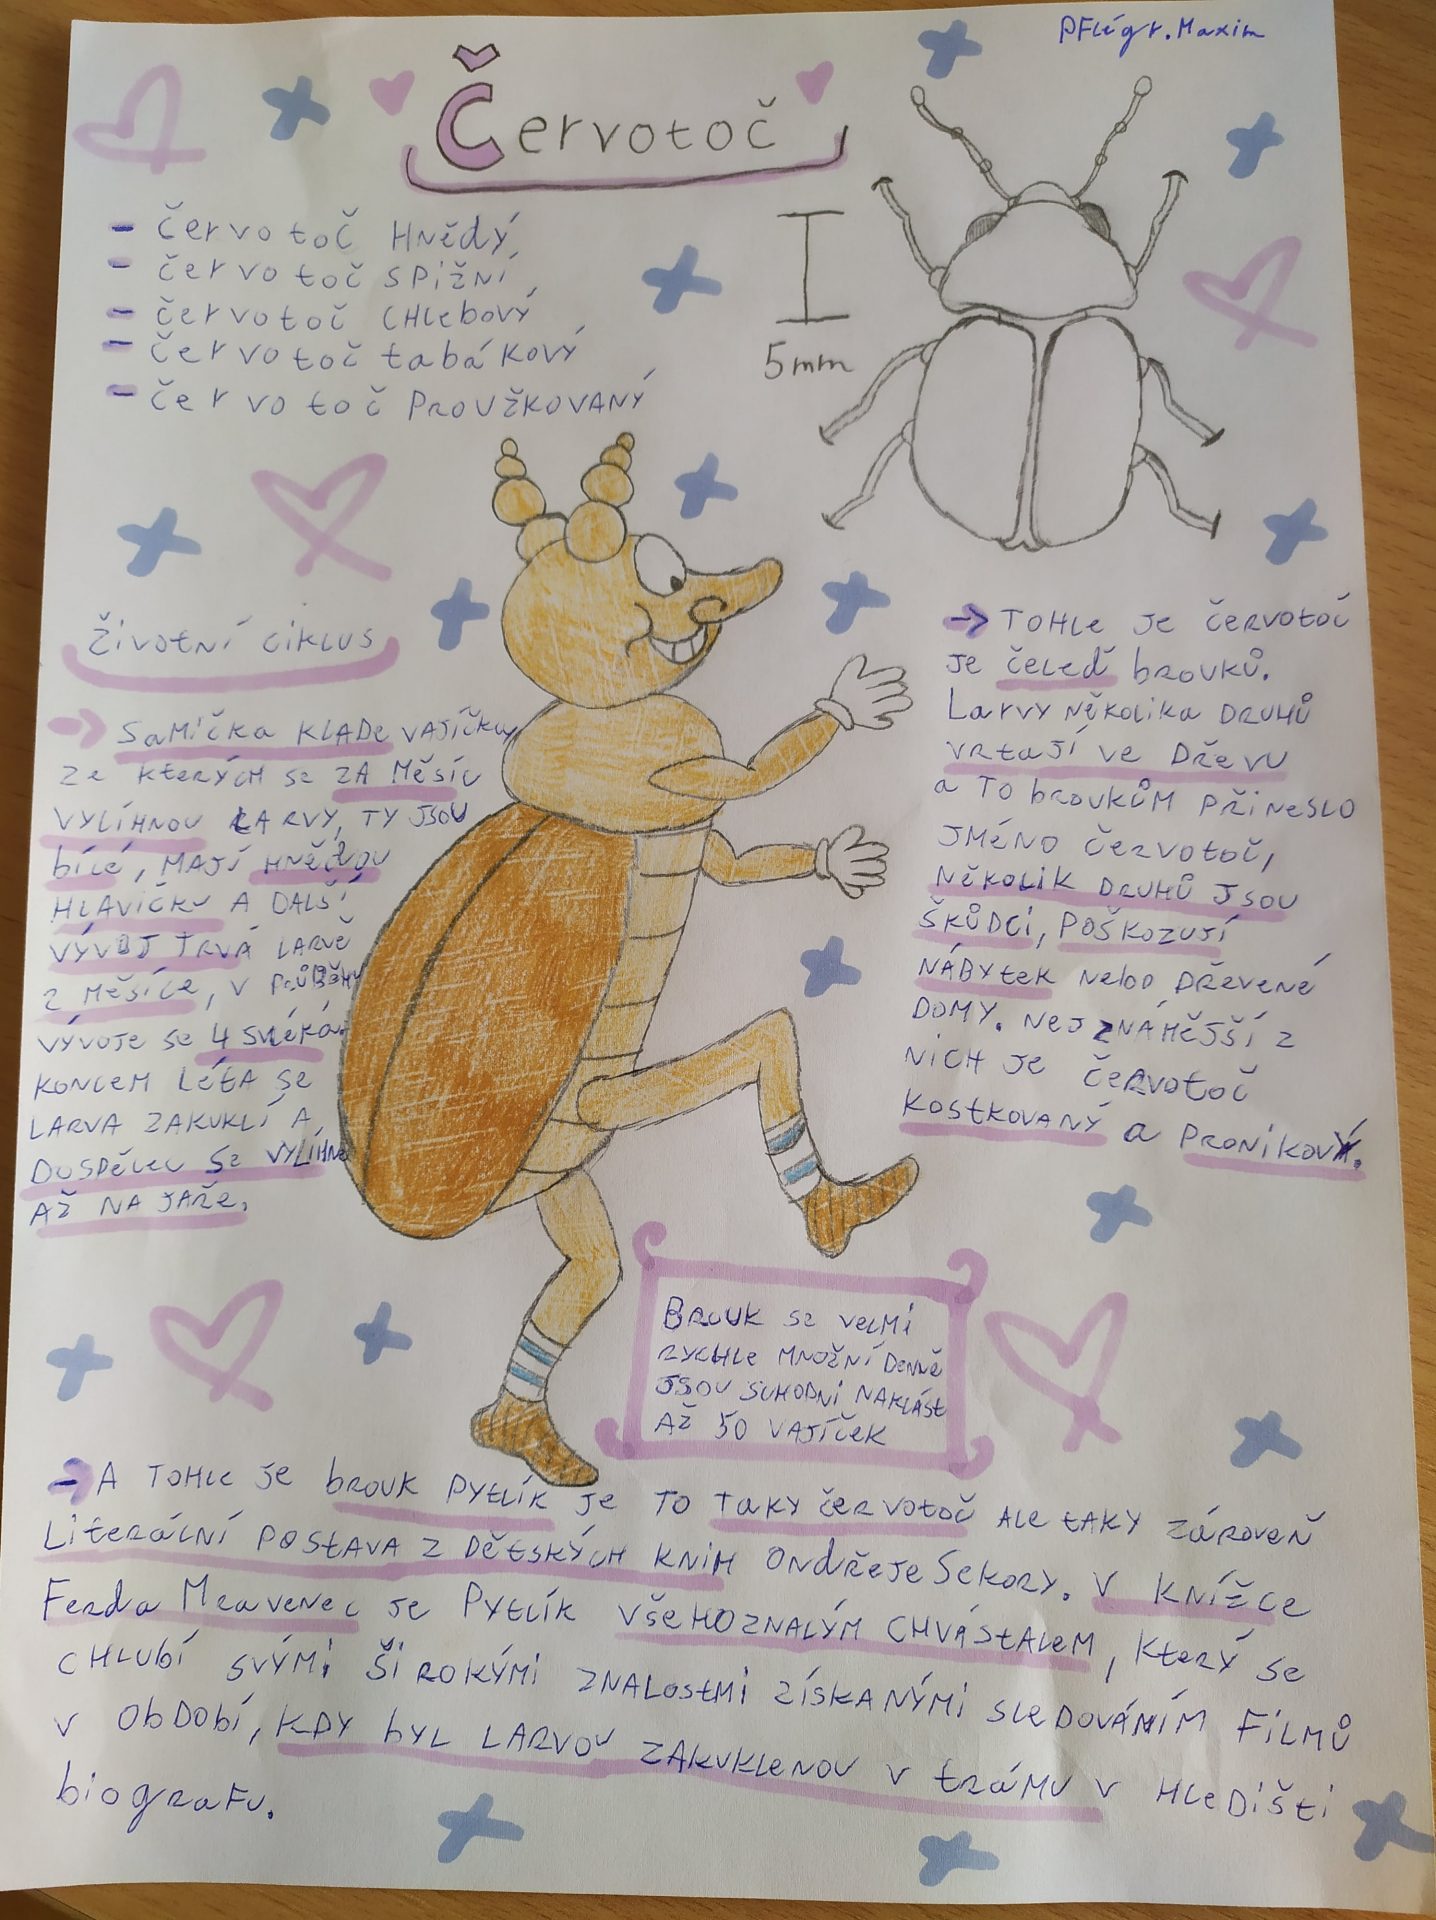 PFlégr. Maxim
Červotoč
- červotoč Hnědý,
- červotoč spižní,
- červotoč CHlebový,
- červotoč tabákový,
- červotoč ProužKovaNÝ
5mm
Životní ciklus
→ SaMička KLADe VAJíčka
ze kterých se ZA Měsíc
VYLíHNOU LARVY, TY JSOU
bílé, MAJí HNědou
HLAVIČKU A DALší
VÝVOJ TRVÁ LARVě
2 Měsíce, v PRůběHu
VÝVOJe se 4 svléká.
KONCeM Léta se
LARVA ZAKUKLí A
DOSPěLec se VYLíHNe
AŽ NA JAře.
→ TOHLe Je červotoč
Je čeleď brouků.
Larvy NěKoliKa DRUHŮ
VRtaJí ve Dřevu
a To broukůM PřiNesLo
JMéNo červotoč,
NěKoLiK DRUHŮ JSOU
ŠKůDci, PoŠKozuJí
NÁBYteK Nebo Dřevené
DoMY. NeJZNÁMěJší z
Nich Je červotoč
KostKovaNÝ a PRoNiKovÝ.
BRouK se veLMi
RYCHLe MNožNí DeNNě
JSOU SCHoPNi NaKLást
AŽ 50 VaJíčeK
→ A TOHLe Je brouK PYtLíK je To TaKY červotoč ALe taKY zároveň
LiteráLNí PostaVA z DětsKÝCH KNiH ONDřeJe SeKoRY. V KNížce
Ferda MRaveNec Je PYtLíK vševHOZNALÝM CHVástaLeM, KterÝ se
CHLubí SVÝMi šiRoKÝMi ZNALostMi zísKANÝMi sLeDováNíM FiLMŮ
v obDobí, KDY bYL LARVou ZAKuKLeNou v tRáMu v HLeDišti
biografu.